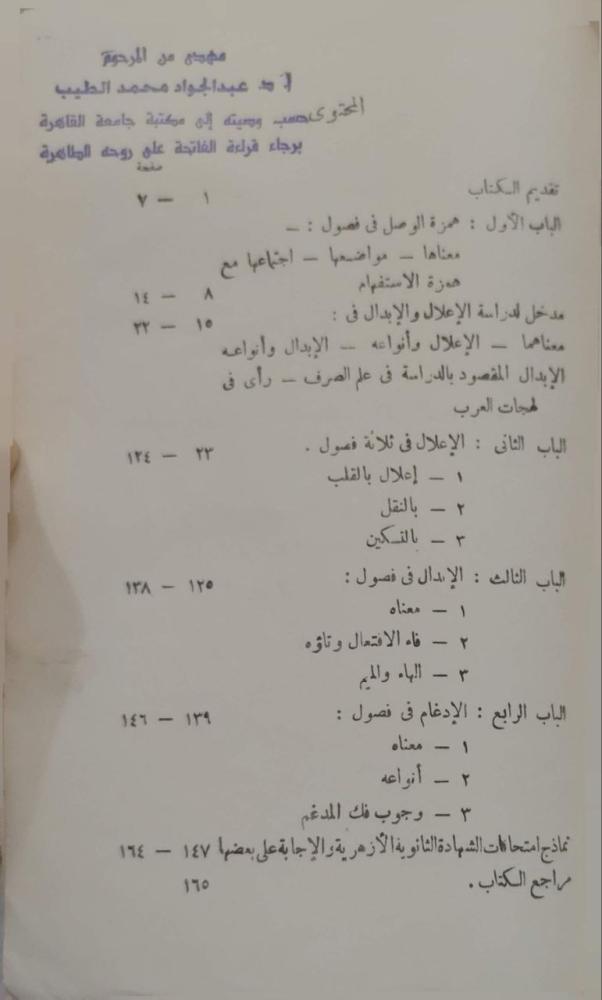 مهدى من المرحوم
أ د عبدالجواد محمد الطيب
المحتوى
حسب وصيته إلى مكتبة جامعة القاهرة
برجاء قراءة الفاتحة على روحه الطاهرة
صفحة
تقديم الكتاب ١ — ٧
الباب الأول : همزة الوصل فى فصول : —
معناها — مواضعها — اجتماعها مع
همزة الاستفهام ٨ — ١٤
مدخل لدراسة الإعلال والإبدال فى : ١٥ — ٢٢
معناهما — الإعلال وأنواعه — الإبدال وأنواعه
الإبدال المقصود بالدراسة فى علم الصرف — رأى فى
لهجات العرب
الباب الثانى : الإعلال فى ثلاثة فصول . ٢٣ — ١٢٤
١ — إعلال بالقلب
٢ — بالنقل
٣ — بالتسكين
الباب الثالث : الإبدال فى فصول : ١٢٥ — ١٣٨
١ — معناه
٢ — فاء الافتعال وتاؤه
٣ — الهاء والميم
الباب الرابع : الإدغام فى فصول : ١٣٩ — ١٤٦
١ — معناه
٢ — أنواعه
٣ — وجوب فك المدغم
نماذج امتحانات الشهادة الثانوية الأزهرية والإجابة على بعضها ١٤٧ — ١٦٤
مراجع الكتاب . ١٦٥